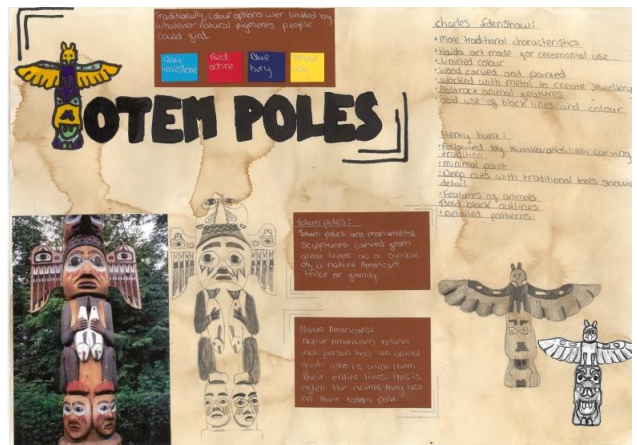 Traditionally, colour options wer limited by
whatever natural pigments people
could find.
Red
ochre
Blue
TOTEM POLES
Charles Edenshaw:
• More traditional characteristics
• Haida art made for ceremonial use
• Limeted colour
• Wood carved and painted
• Worked with metal to create jewellery
• Abstract animal features
• Bold use of black lines and colour
Henry hunt:
• Followed by carving
tradition
• minimal paint
• Deep cuts with traditional tools showing
detail
• Features of animals
Bold black outlines
• Detailed patterns.
Totem poles:
Totem poles are monumental
sculptures carved from
great trees as a symbol
of a native American
tribe or family.
Native Americans:
Native Americans believe
each person has an animal
guide who is with them
their entire lives. This is
often the animal they use
on their totem pole.